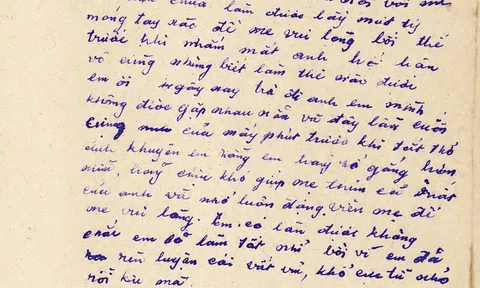 chưa làm được lấy một tý
móng tay nào để mẹ vui lòng bởi thế
trước khi nhắm mắt anh hối hận
vô cùng nhưng biết làm thế nào được
em ơi ngày nay trở đi anh em mình
không được gặp nhau nữa và đây lần cuối
cùng của mấy phút trước khi tắt thở
anh khuyên em rằng em hãy cố gắng hơn
nữa, hãy chịu khó giúp mẹ
của anh và nhớ luôn động viên mẹ để
mẹ vui lòng. Em có làm được không
chắc em sẽ làm tốt nhỉ bởi vì em đã
rèn luyện cái vất vả, khổ cực từ nhỏ
rồi kia mà.